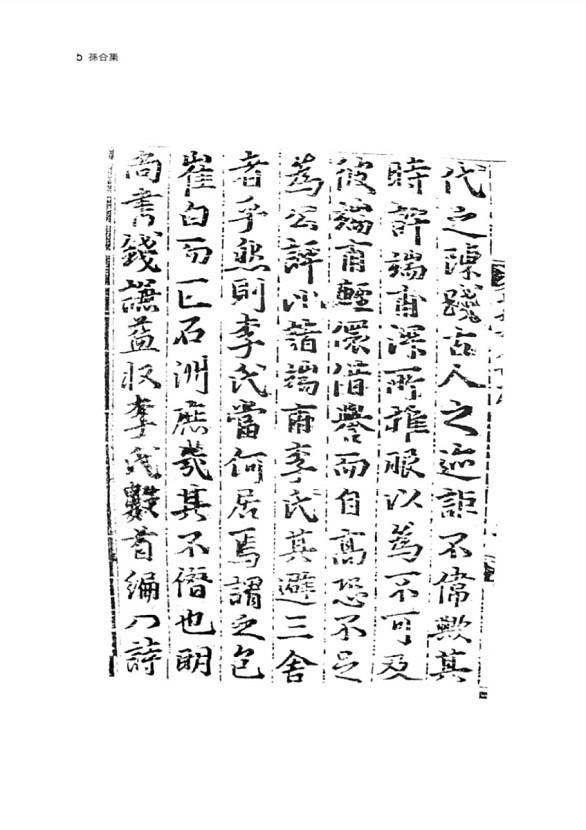 5 蓀谷集
代之陳踐古人之迹詎不偉歟其
時許端甫深所推服以為不可及
彼端甫輕儇借譽而自高恐不足
為公評 端甫李氏其避三舍
者乎然則李氏當何居焉謂之包
崔白而匹石洲庶幾其不僭也明
尚書錢謙益收李氏數首編入詩